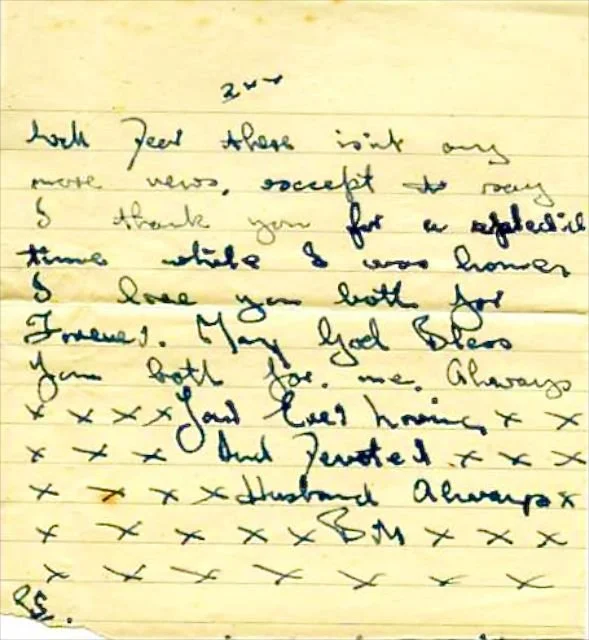 Well Dear there isn't any
more news, except to say
I thank you for a
time while I was home,
I love you both for
Forever. May God Bless
You both for me. Always
x x x x Your Ever Loving x x
x x x And Devoted x x x
x x x x Husband Always x
x x x x x BM x x x
x x x x x x x
PS.